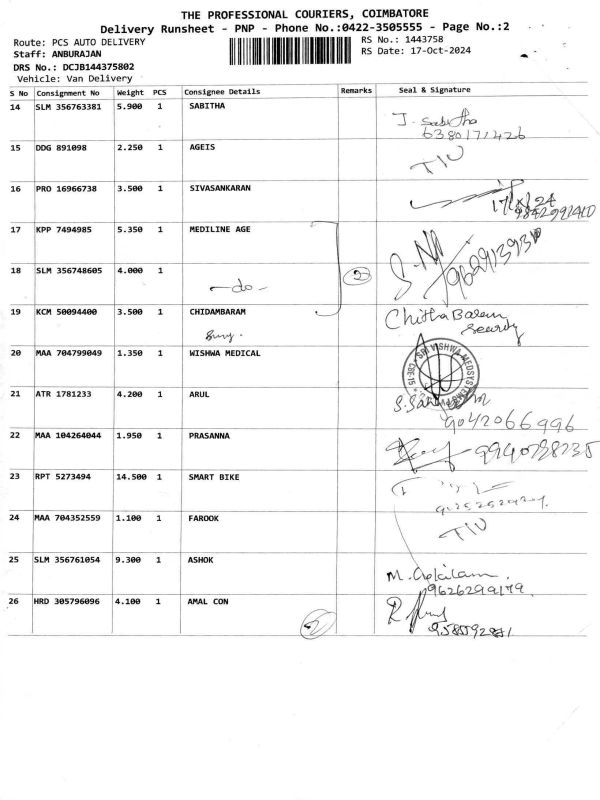 THE PROFESSIONAL COURIERS, COIMBATORE
Delivery Runsheet - PNP - Phone No.:0422-3505555 - Page No.:2
Route: PCS AUTO DELIVERY
RS No.: 1443758
Staff: ANBURAJAN
RS Date: 17-Oct-2024
DRS No.: DCJB144375802
Vehicle: Van Delivery
S No Consignment No Weight PCS Consignee Details Remarks Seal & Signature
14 SLM 356763381 5.900 1 SABITHA
J. Sabitha
6380171426
15 DDG 891098 2.250 1 AGEIS
16 PRO 16966738 3.500 1 SIVASANKARAN
17/10/24
17 KPP 7494985 5.350 1 MEDILINE AGE
18 SLM 356748605 4.000 1
-do-
2
19 KCM 50094400 3.500 1 CHIDAMBARAM
Chitha Baram
Security
20 MAA 704799049 1.350 1 WISHWA MEDICAL
SRI VISHWA MEDSYSTEMS
CBE-15
21 ATR 1781233 4.200 1 ARUL
9042066996
22 MAA 104264044 1.950 1 PRASANNA
23 RPT 5273494 14.500 1 SMART BIKE
24 MAA 704352559 1.100 1 FAROOK
25 SLM 356761054 9.300 1 ASHOK
M.
9626299179
26 HRD 305796096 4.100 1 AMAL CON
R